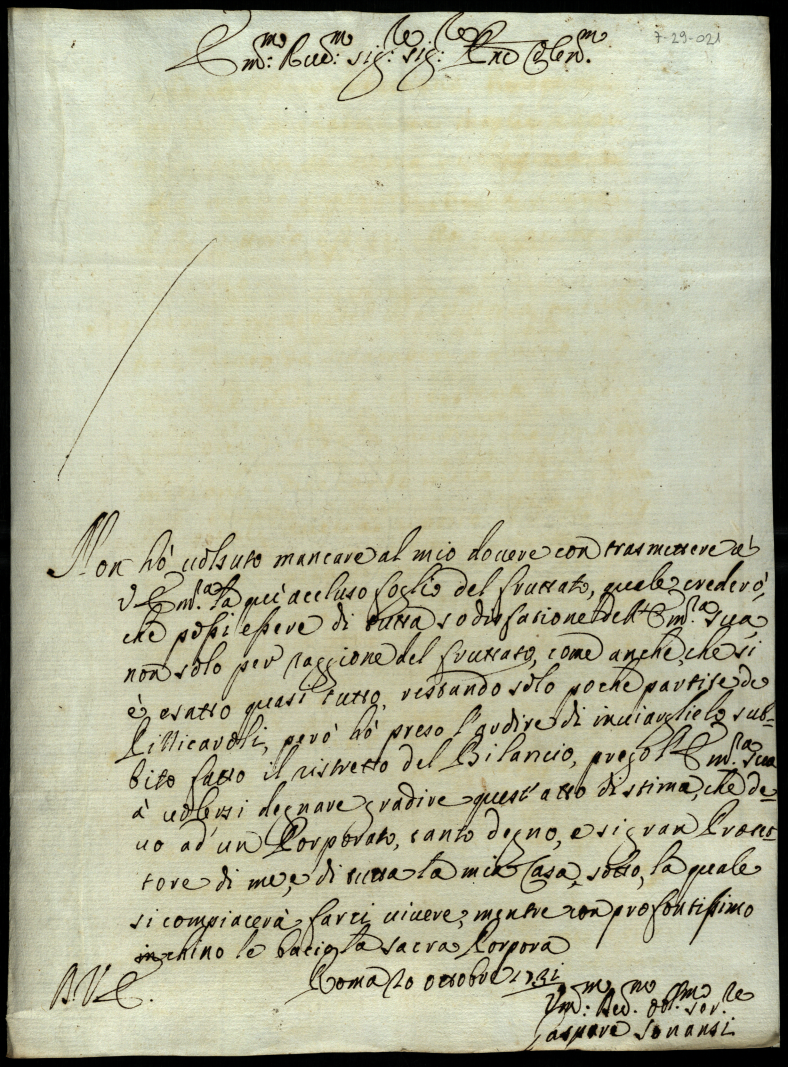 7-29-021
Em.mo Rev.mo Sig.re Sig.re Pne Colen.mo
Non hò volsuto mancare al mio dovere con trasmettere à
V. Em.za la quì accluso foglio del fruttato, quale crederò,
che possi essere di tutta sodisfatione dell'Em.za sua
non solo per raggione del fruttato, come anche, che si
è esatto quasi tutto, restando solo poche partite de
Pillicaroli, però hò preso l'ardire di inviarglielo sub-
bito fatto il ristretto del Bilancio, prego l'Em.za sua
à volersi degnare gradire quest'atto di stima, che de-
vo ad' un Porporato, tanto degno, e si gran Protet-
tore di me, e di tutta la mia Casa, sotto, la quale
si compiacerà farci vivere, mentre con profontissimo
inchino le bacio la sacra Porpora
Roma 20 ottobre 1731
B. V. E.
Um.mo Dev.mo obl.mo ser.re
Gaspare